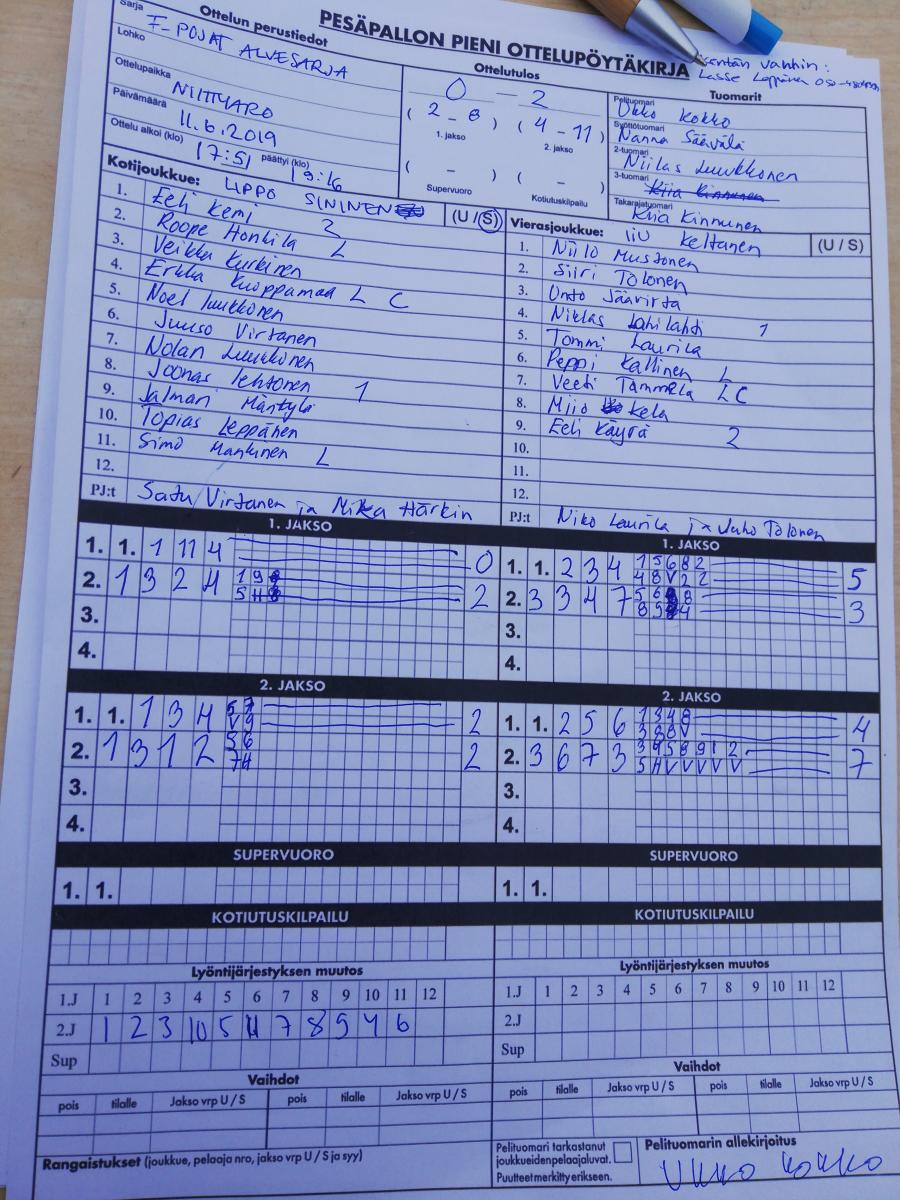 PESÄPALLON PIENI OTTELUPÖYTÄKIRJA
Ottelun perustiedot
Sarja F-POJAT ALUESARJA
Lohko
Ottelupaikka NIITTYARO
Päivämäärä 11.6.2019
Ottelu alkoi (klo) 17:51 päättyi (klo) 19:16
Ottelutulos
0 - 2
( 2 - 8 ) ( 4 - 11 )
1. jakso 2. jakso
( - ) ( - )
Supervuoro Kotiutuskilpailu
vanhin:
Lasse Leppänen
Tuomarit
Pelituomari Ukko Kokko
Syöttötuomari Nanna Säävälä
2-tuomari Niilas Luukkonen
3-tuomari Kiia Kinnunen
Takarajatuomari Kiia Kinnunen
Kotijoukkue: LIPPO SININEN (U / S)
1. Eeli Kemi 2
2. Roope Honkila L
3. Veikka Kurkinen
4. Erkka Kuoppamaa L C
5. Noel Luukkonen
6. Juuso Virtanen
7. Nolan Luukkonen
8. Joonas Lehtonen 1
9. Jalmari Mäntylä
10. Topias Leppänen
11. Simo Manninen L
12.
PJ:t Satu Virtanen ja Mika Härkin
Vierasjoukkue: IiU Keltanen (U / S)
1. Niilo Mustonen
2. Siiri Tolonen
3. Onto Jäävirta
4. Niklas Lahilahti 1
5. Tommi Laurila
6. Peppi Kallinen L
7. Veeti Tammela L C
8. Miio Kela
9. Eeli Käyrä 2
10.
11.
12.
PJ:t Niko Laurila ja Juho Tolonen
1. JAKSO
1. 1. 1 11 4 0
2. 1 3 2 4 2
3.
4.
1. JAKSO
1. 1. 2 3 4 1 5 6 8 2 5
4 8 V 2 2
2. 3 3 4 7 3
3.
4.
2. JAKSO
1. 1. 1 3 4 5 7 2
V 9
2. 1 3 1 2 2
3.
4.
2. JAKSO
1. 1. 2 5 6 1 3 4 8 4
3 8 8 V
2. 3 6 7 3 3 4 5 8 9 1 2 7
5 H V V V V V
3.
4.
SUPERVUORO
1. 1.
SUPERVUORO
1. 1.
KOTIUTUSKILPAILU
KOTIUTUSKILPAILU
Lyöntijärjestyksen muutos
1.J 1 2 3 4 5 6 7 8 9 10 11 12
2.J 1 2 3 10 5 11 7 8 9 4 6
Sup
Lyöntijärjestyksen muutos
1.J 1 2 3 4 5 6 7 8 9 10 11 12
2.J
Sup
Vaihdot
pois tilalle Jakso vrp U / S pois tilalle Jakso vrp U / S
Vaihdot
pois tilalle Jakso vrp U / S pois tilalle Jakso vrp U / S
Rangaistukset (joukkue, pelaaja nro, jakso vrp U / S ja syy)
Pelituomari tarkastanut
joukkueidenpelaajaluvat.
Puutteet merkitty erikseen.
Pelituomarin allekirjoitus
Ukko Kokko